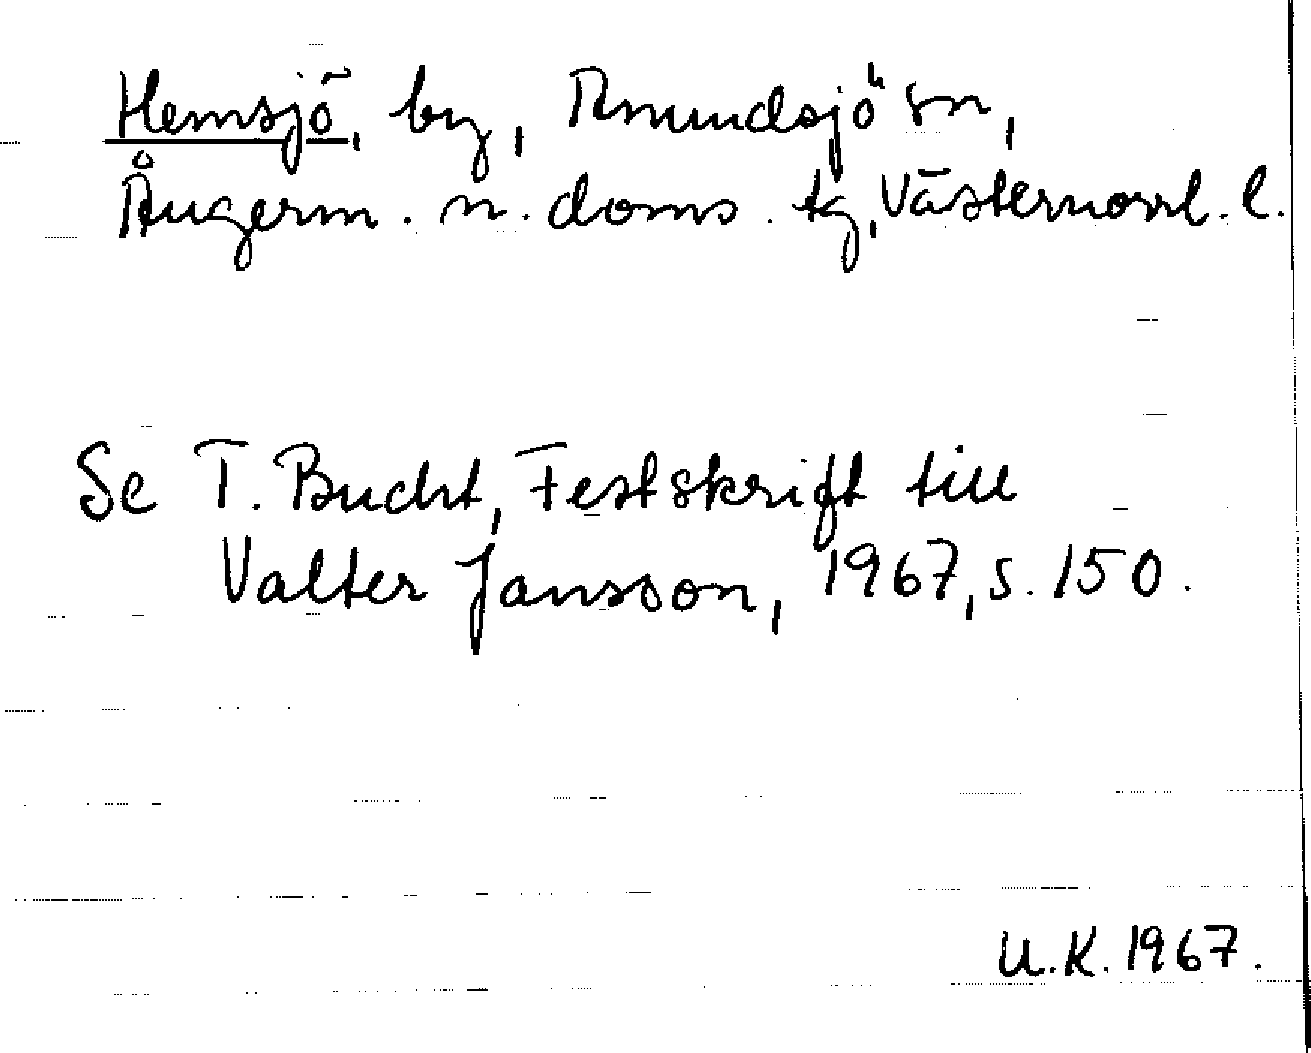 Hemsjö, by, Anundsjö sn,
Ångerm. n. doms. tg, Västernorrl. l.
Se T. Bucht, Festskrift till
Valter Jansson, 1967, s. 150.
U.K. 1967.